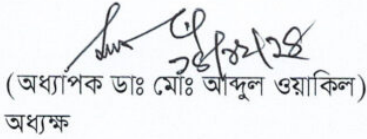 (অধ্যাপক ডাঃ মোঃ আব্দুল ওয়াকিল)
অধ্যক্ষ